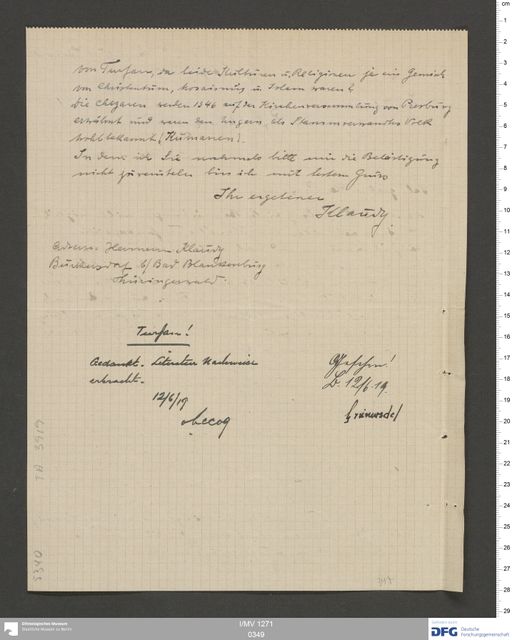 von Turfan, da beide Kulturen u. Religionen ja ein Gemisch
von Christentum, Mosaismus u. Islam waren?
Die Chazaren werden 1346 auf der Kirchenversammlung von
erwähnt und waren den Ungarn als Stammverwandtes Volk
wohlbekannt (Kumanen).
In dem ich Sie nochmals bitte mir die Belästigung
nicht zu verübeln bin ich mit bestem Gruss
Ihr ergebener
Klaudy
Adress. Hermann Klaudy
b/ Bad Blankenburg
Thüringerwald.
Turfan!
Bedankt. Literatur Nachweise
erbracht.
12/6/19
Lecoq
Gesehen!
B. 12/6.19.
Grünwedel
I/MV 1271
0349
Ethnologisches Museum
Staatliche Museen zu Berlin
DFG Deutsche
Forschungsgemeinschaft
cm
1
2
3
4
5
6
7
8
9
10
11
12
13
14
15
16
17
18
19
20
21
22
23
24
25
26
27
28
29